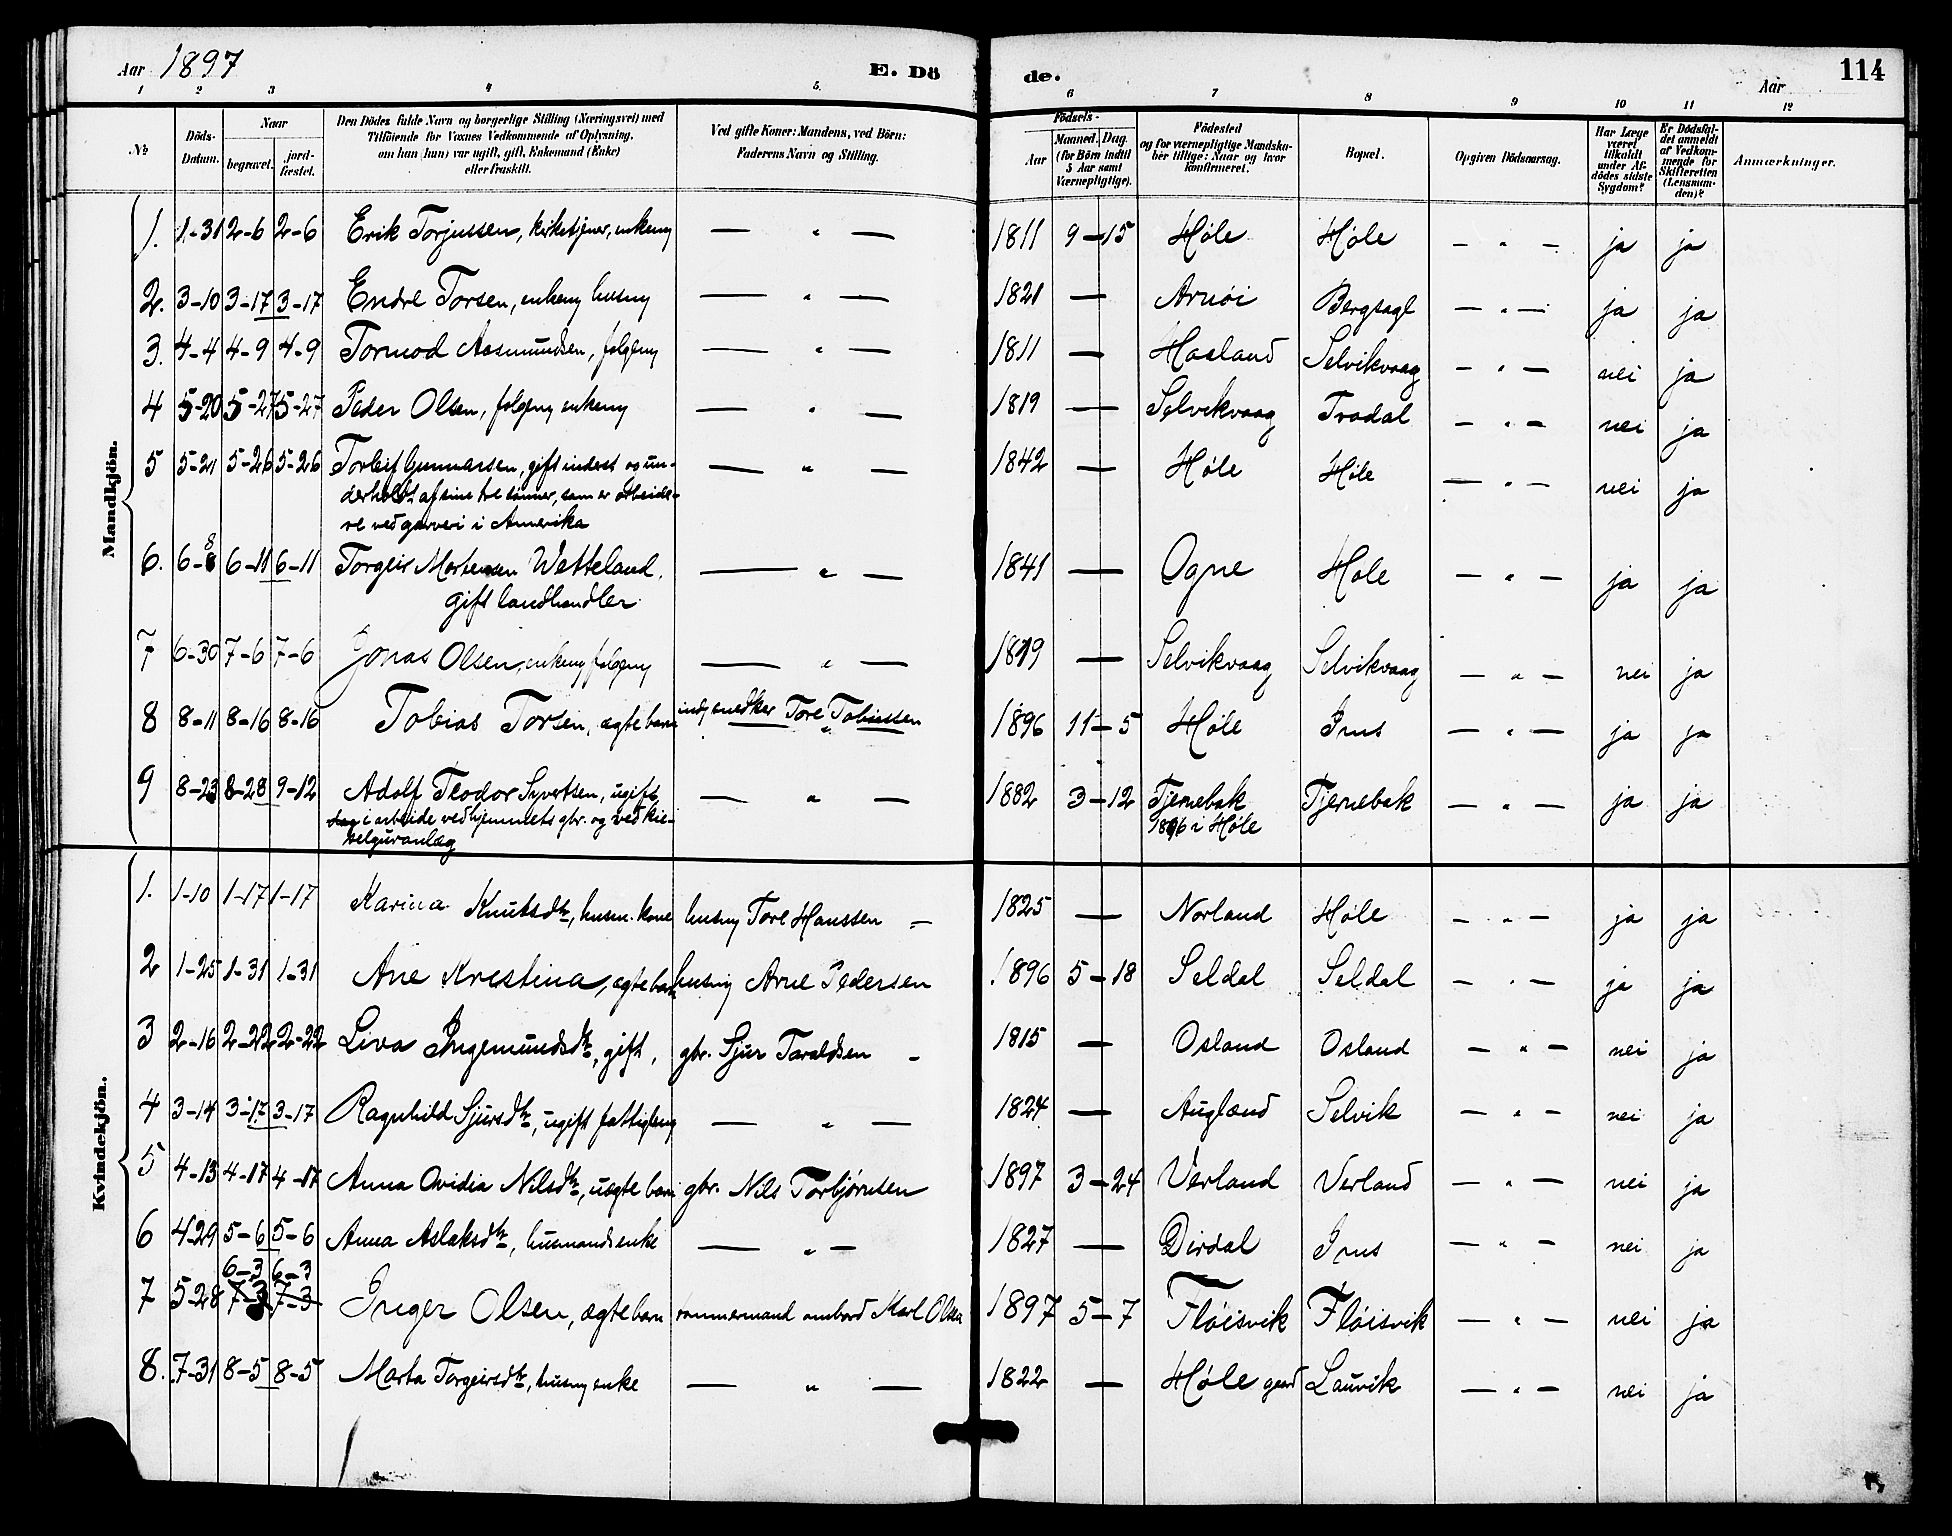 Aar 1897 E. Dö de. Aar 114
1 2 3 4 5. 6 7 8 9 10 11 12
№ Döds-Datum. Naar begravet. jord-fæstet.
Den Dödes fulde Navn og borgerlige Stilling (Næringsvei) med
Tilföiende for Voxnes Vedkommende af Oplysning,
om han (hun) var ugift, gift, Enkemand (Enke)
eller fraskilt.
Ved gifte Koner: Mandens, ved Börn:
Faderens Navn og Stilling.
Födsels- Aar Maaned. Dag. (for Börn indtil 5 Aar samt Værnepligtige).
Födested og for værnepligtige Mandskaber tillige: Naar og hvor Konfirmeret.
Bopæl.
Opgiven Dödsaarsag.
Har Læge været tilkaldt under Afdödes sidste Sygdom?
Er Dödsfaldet anmeldt af Vedkommende for Skifteretten (Lensmanden)?
Anmærkninger.
Mandkjön.
1. 1-31 2-6 2-6 Erik Torjussen, kirketjener, enkem — " — 1811 9-15 Høle Høle — " — ja ja
2. 3-10 3-17 3-17 Endre Torsen, enkem husm — " — 1821 — Arnøi Bergsagl — " — ja ja
3. 4-4 4-9 4-9 Tormod Aasmundsen, folgem — " — 1811 — Haaland Selvikvaag — " — nei ja
4 5-20 5-27 5-27 Peder Olsen, folgem enkem — " — 1819 — Selvikvaag Tradal — " — nei ja
5 5-21 5-26 5-26 Torleif Gunnarsen, gift inderst og un-
derholdt af sine tre sønner, som er arbeide-
re ved garveri i Amerika — " — 1842 — Høle Høle — " — nei ja
6. 6-8 8 6-11 6-11 Torgeir Mortensen Wetteland,
gift landhandler — " — 1841 — Ogne Høle — " — ja ja
7 6-30 7-6 7-6 Jonas Olsen, enkem folgem — " — 1819 — Selvikvaag Selvikvaag — " — nei ja
8 8-11 8-16 8-16 Tobias Torsen, ægte barn ind, snedker Tore Tobiassen — " — 1896 11-5 Høle Ims — " — ja ja
9 8-23 8-28 9-12 Adolf Teodor Syvertsen, ugift
i arbeide ved hjemmets gbr. og ved kie-
selguranlæg — " — 1882 3-12 Tjernebak
1896 i Høle Tjernebak — " — ja ja
Kvindekjön.
1. 1-10 1-17 1-17 Karina Knutsdtr, husm. kone husm Tore Hanssen — 1825 — Norland Høle — " — ja ja
2 1-25 1-31 1-31 Ane Kristina, ægte barn husm Arne Pedersen 1896 5-18 Seldal Seldal — " — ja ja
3 2-16 2-22 2-22 Liva Ingemundsdtr, gift, gbr. Sjur Taraldsen — 1815 — Osland Osland — " — nei ja
4 3-14 3-17 3-17 Ragnhild Sjursdtr, ugift fattiglem — " — 1824 — Augland Selvik — " — nei ja
5 4-13 4-17 4-17 Anna Ovidia Nilsdtr, uægte barn gbr. Nils Torbjørnsen 1897 3-24 Verland Verland — " — nei ja
6 4-29 5-6 5-6 Anna Aslaksdtr, husmandsenke — " — 1827 — Dirdal Ims — " — nei ja
6-3 6-3
7 5-28 7-3 7-3 Inger Olsen, ægte barn Karl Olsen 1897 5-7 Fløisvik Fløisvik — " — nei ja
8. 7-31 8-5 8-5 Marta Torgeirsdtr, husm enke — " — 1822 — Høle gaard Lauvik — " — nei ja